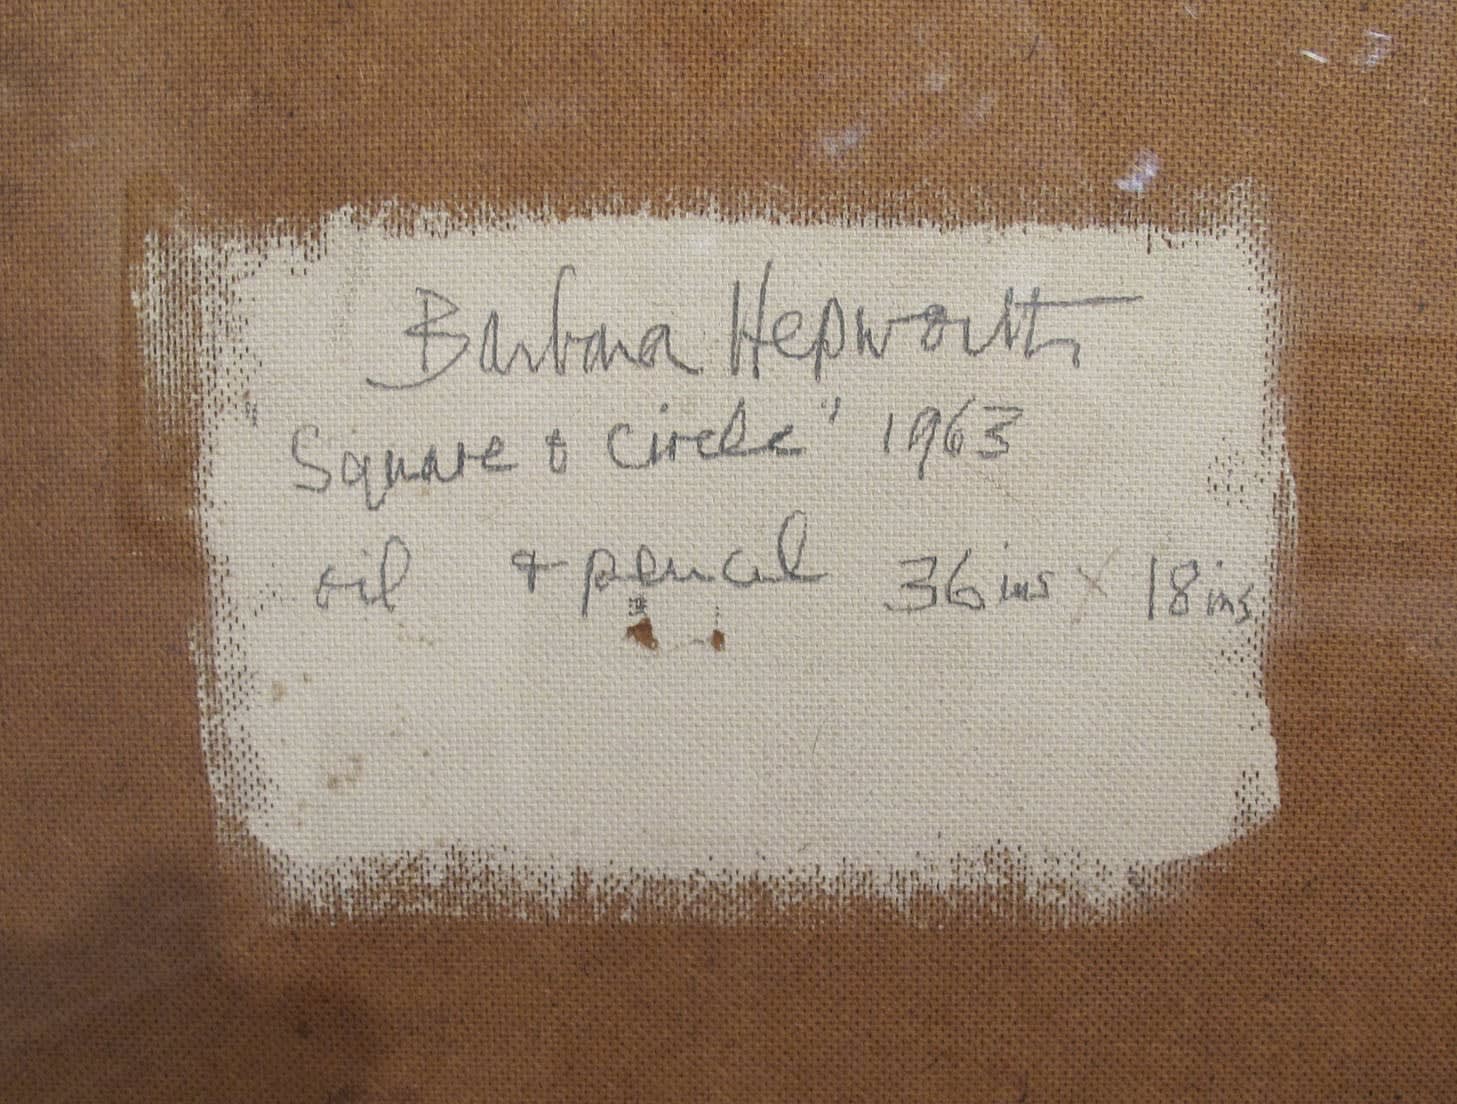 Barbara Hepworth
"Square & Circle" 1963
oil & pencil 36 ins x 18 ins